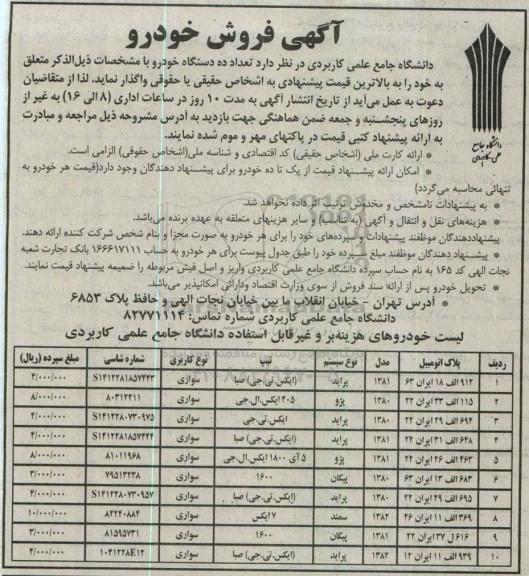 آگهی فروش خودرو
دانشگاه جامع
علمی کاربردی
دانشگاه جامع علمی کاربردی در نظر دارد تعداد ده دستگاه خودرو با مشخصات ذیل‌الذکر متعلق
به خود را به بالاترین قیمت پیشنهادی به اشخاص حقیقی یا حقوقی واگذار نماید. لذا از متقاضیان
دعوت به عمل می‌آید از تاریخ انتشار آگهی به مدت ۱۰ روز در ساعات اداری (۸ الی ۱۶) به غیر از
روزهای پنجشنبه و جمعه ضمن هماهنگی جهت بازدید به آدرس مشروحه ذیل مراجعه و مبادرت
به ارائه پیشنهاد کتبی قیمت در پاکتهای مهر و موم شده نمایند.
• ارائه کارت ملی (اشخاص حقیقی) کد اقتصادی و شناسه ملی(اشخاص حقوقی) الزامی است.
• امکان ارائه پیشنهاد قیمت از یک تا ده خودرو برای پیشنهاد دهندگان وجود دارد(قیمت هر خودرو به
تنهائی محاسبه می‌گردد)
• به پیشنهادات نامشخص و مخدوش ترتیب اثر داده نخواهد شد.
• هزینه‌های نقل و انتقال و آگهی (به تناسب) و سایر هزینه‌های متعلقه به عهده برنده می‌باشد.
پیشنهاددهندگان موظفند پیشنهادات و سپرده‌های خود را برای هر خودرو به صورت مجزا و بنام شخص شرکت کننده ارائه دهند.
• پیشنهاد دهندگان موظفند مبلغ سپرده خود را طبق جدول پیوست برای هر خودرو به حساب ۱۶۶۶۱۷۱۱۱ بانک تجارت شعبه
نجات الهی کد ۱۶۵ به نام حساب سپرده دانشگاه جامع علمی کاربردی واریز و اصل فیش مربوطه را ضمیمه پیشنهاد قیمت نمایند.
• تحویل خودرو پس از ارائه سند فروش از سوی وزارت اقتصاد ودارائی امکانپذیر می‌باشد.
• آدرس تهران – خیابان انقلاب ما بین خیابان نجات الهی و حافظ پلاک ۶۸۵۳
دانشگاه جامع علمی کاربردی شماره تماس: ۸۲۷۷۱۱۱۴
لیست خودروهای هزینه‌بر و غیرقابل استفاده دانشگاه جامع علمی کاربردی
ردیف پلاک اتومبیل مدل نوع سیستم تیپ نوع کاربری شماره شاسی مبلغ سپرده (ریال)
۱ ۹۱۲ الف ۱۸ ایران ۶۳ ۱۳۸۱ پراید (ایکس.تی.جی) صبا سواری S۱۴۱۲۲۸۱۸۵۷۴۴۳ ۴/۰۰۰/۰۰۰
۲ ۱۱۵ الف ۳۳ ایران ۲۲ ۱۳۸۰ پژو ۴۰۵ ایکس.ال.جی سواری ۸۰۳۱۲۲۱۱ ۸/۰۰۰/۰۰۰
۳ ۶۹۴ الف ۲۹ ایران ۲۲ ۱۳۸۰ پراید ایکس.تی.جی سواری S۱۴۱۲۲۸۰۷۳۰۹۷۵ ۴/۰۰۰/۰۰۰
۴ ۶۲۸ الف ۳۱ ایران ۲۲ ۱۳۸۱ پراید (ایکس.تی.جی) صبا سواری S۱۴۱۲۲۸۱۸۵۷۴۲۴ ۴/۰۰۰/۰۰۰
۵ ۴۶۳ الف ۲۶ ایران ۲۲ ۱۳۸۱ پژو ۵ آی ۱۸۰۰ ایکس.ال.جی سواری ۸۱۰۱۱۹۶۸ ۸/۰۰۰/۰۰۰
۶ ۶۸۳ الف ۱۳ ایران ۶۳ ۱۳۸۰ پیکان ۱۶۰۰ سواری ۷۹۵۱۳۲۳۸ ۳/۰۰۰/۰۰۰
۷ ۶۹۵ الف ۲۹ ایران ۲۲ ۱۳۸۰ پراید (ایکس.تی.جی) صبا سواری S۱۴۱۲۲۸۰۷۳۰۹۵۷ ۴/۰۰۰/۰۰۰
۸ ۳۶۹ الف ۱۱ ایران ۴۶ ۱۳۸۲ سمند ۷ ایکس سواری ۸۲۲۴۰۸۸۴ ۱۰/۰۰۰/۰۰۰
۹ ۶۱۶ ل ۳۷ ایران ۲۲ ۱۳۸۱ پیکان ۱۶۰۰ سواری ۸۱۵۹۵۷۳۱ ۳/۰۰۰/۰۰۰
۱۰ ۹۳۹ الف ۱۱ ایران ۱۲ ۱۳۸۲ پراید (ایکس.تی.جی) صبا سواری ۱۰۴۱۲۲۸E۱۲ ۴/۰۰۰/۰۰۰